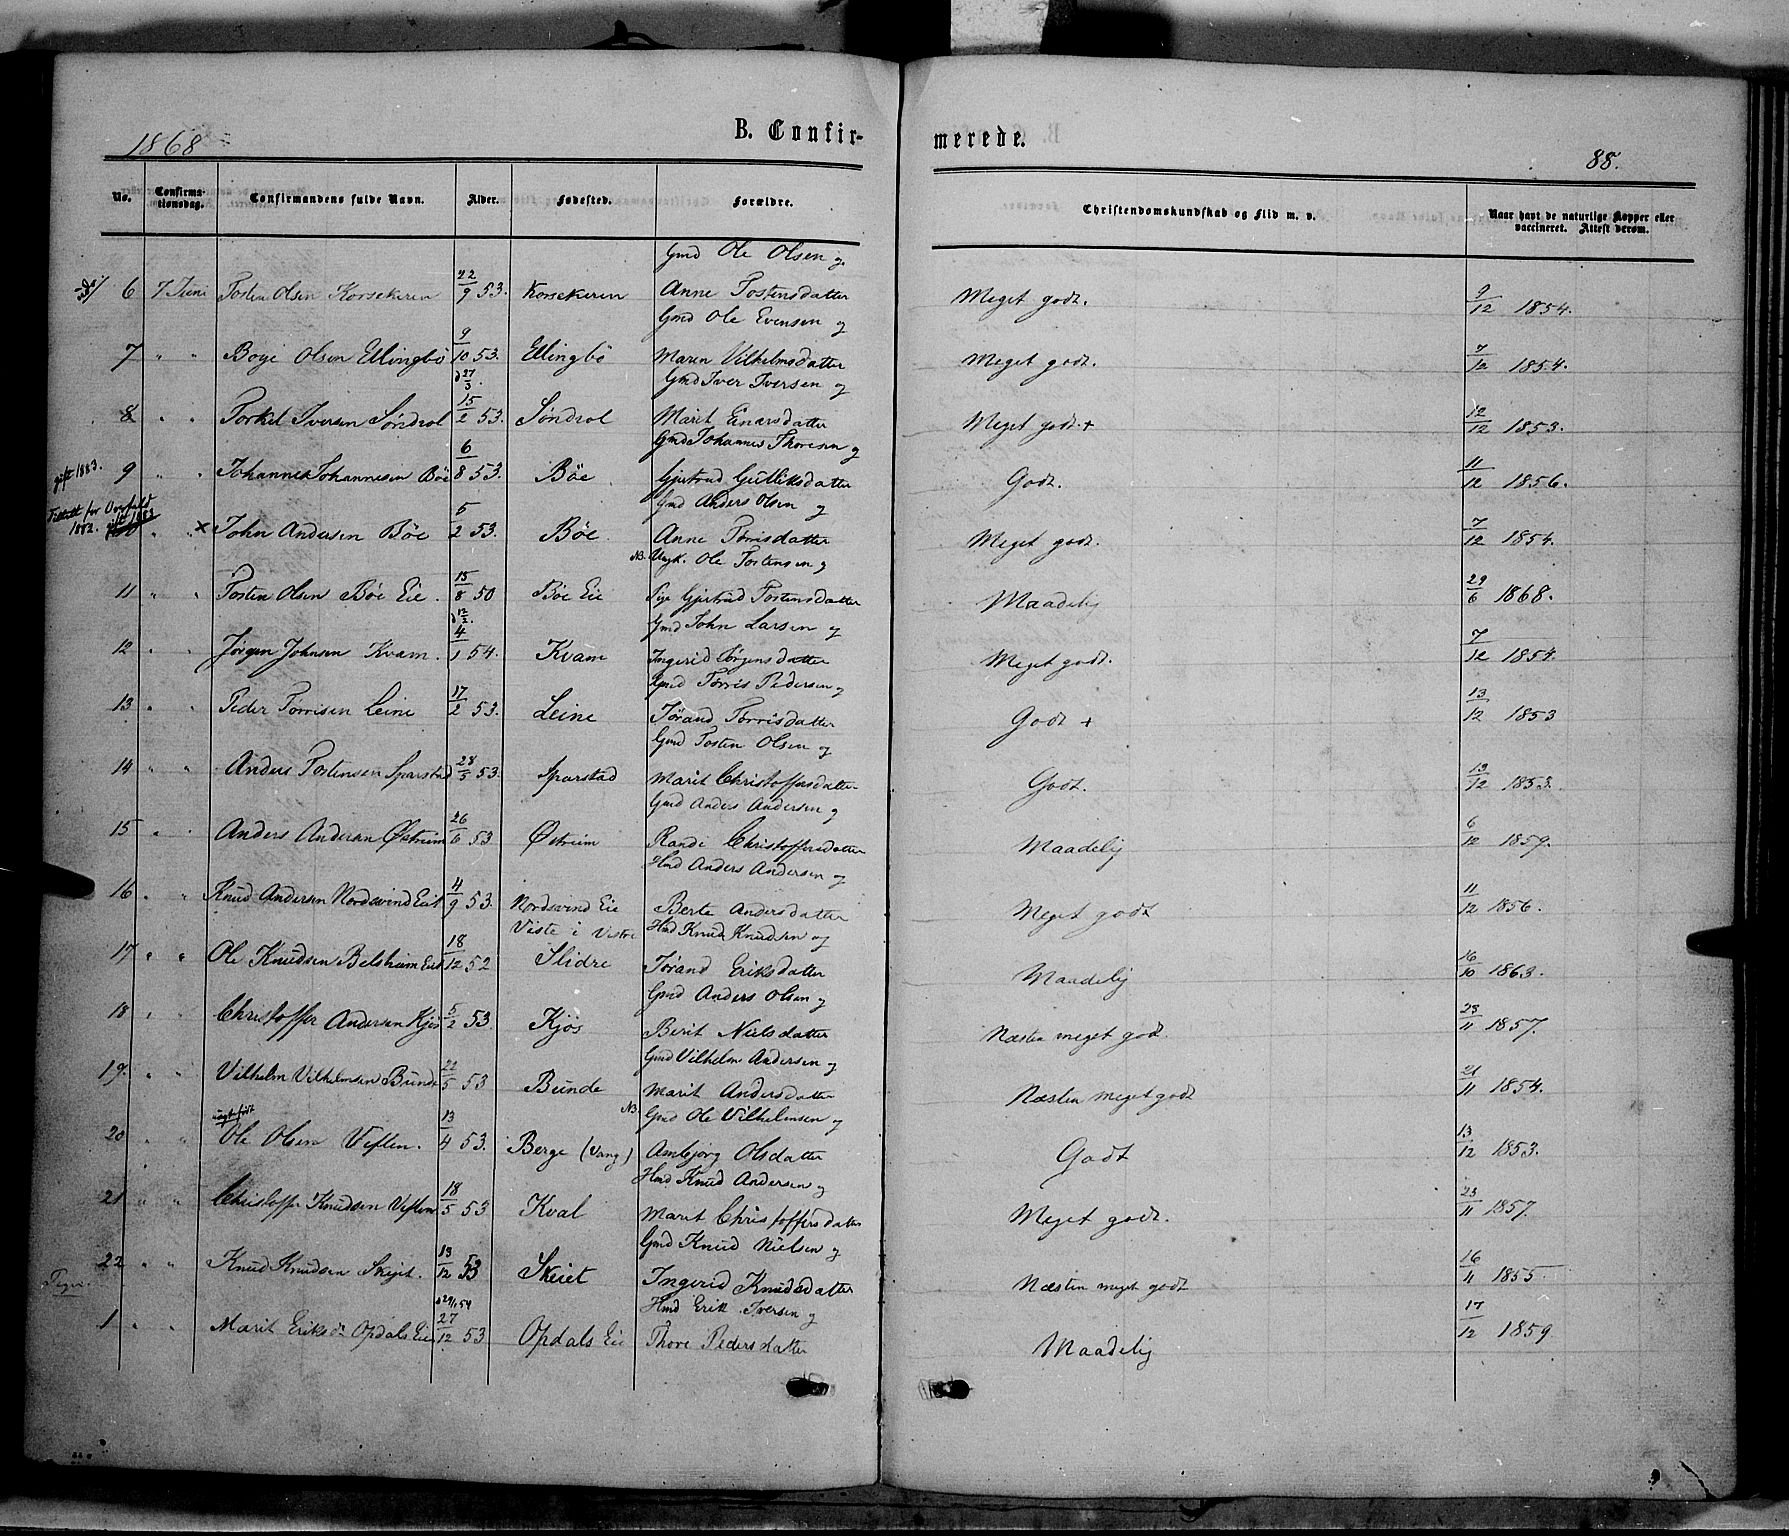 1868
B. Confirmerede.
88.
No. Confirmationsdag. Confirmandens fulde Navn. Alder. Fødested. Forældre. Christendomskundskab og Flid m. v. Naar havt de naturlige Kopper eller vaccineret. Attest derom.
Gmd Ole Olsen og
6 7 Juni Tosten Olsen Korsekeren 22/9 53. Korsekeren Anne Tostensdatter Meget godt. 9/12 1854.
Gmd Ole Evensen og
7 " " Boye Olsen Ellingbö 9/10 53. Ellingbö Maren Vilhelmsdatter Meget godt. 7/12 1854.
d 27/3. Gmd Iver Iversen og
8 " " Torkel Iversen Söndrol 15/2 53. Söndrol Marit Einarsdatter Meget godt + 12/12 1853.
Gmd Johannes Thoresen og
gift 1883. 9 " " Johannes Johannesen Böe 6/8 53. Böe Gjertrud Gulliksdatter Godt. 11/12 1856.
Gmd Anders Olsen og
Tiltalt for Overfald 1882. gift 1883
" " x John Andersen Böe 5/2 53. Böe. Anne Torrisdatter Meget godt. 7/12 1854.
NB. Ungk. Ole Tostensen og
11 " " Tosten Olsen Böe Eie. 15/8 50 Böe Eie Pige Gjertrud Tostensdatter Maadelig 29/6 1868.
d 12/2. Gmd John Larsen og
12 " " Jörgen Johnsen Kvam. 4/1 54. Kvam Ingerid Jörgensdatter Meget godt. 7/12 1854
Gmd Torris Pedersen og
13 " " Peder Torrisen Leine 17/2 53. Leine Jörand Torrisdatter Godt + 13/12 1853
Gmd Tosten Olsen og
14 " " Anders Tostensen Sparstad 28/5 53. Sparstad Marit Christoffersdatter Godt. 13/12 1853.
Gmd Anders Andersen og
15 " " Anders Andersen Østrem 26/6 53 Østrem Rande Christoffersdatter Maadelig 6/12 1859.
Hmd Anders Andersen og
16 " " Knud Andersen Nordsvind Eie 4/9 53. Nordsvind Eie Berte Andersdatter Meget godt 11/12 1856.
Viste i Vestre Hmd Knud Knudsen og
17 " " Ole Knudsen Belsheim Eie 18/12 52 Slidre Jörand Eriksdatter Maadelig 16/10 1863.
Gmd Anders Olsen og
18 " " Christoffer Andersen Kjös 5/2 53. Kjös Berit Nielsdatter Næsten meget godt. 23/11 1857.
Gmd Vilhelm Andersen og
19. " " Vilhelm Vilhelmsen Bunde 22/5 53 Bunde Marit Andersdatter Næsten meget godt 21/11 1854.
uægte født NB. Gmd Ole Vilhelmsen og
20 " " Ole Olsen Veflen. 13/4 53. Berge (Vang) Ambjörg Olsdatter Godt 13/12 1853.
Hmd Knud Andersen og
21 " " Christoffer Knudsen Veflen 18/5 53 Kval Marit Christoffersdatter Meget godt. 23/11 1857.
Gmd Knud Nielsen og
22 " " Knud Knudsen Skejet. 13/12 53 Skeiet Ingerid Knudsdatter Næsten meget godt 16/11 1855.
Piger.
d 29/1 54 Hmd Erik Iversen og
1 " " Marit Eriksd Opdals Eie 27/12 53 Opdals Eie Thore Pedersdatter Maadelig 17/12 1859